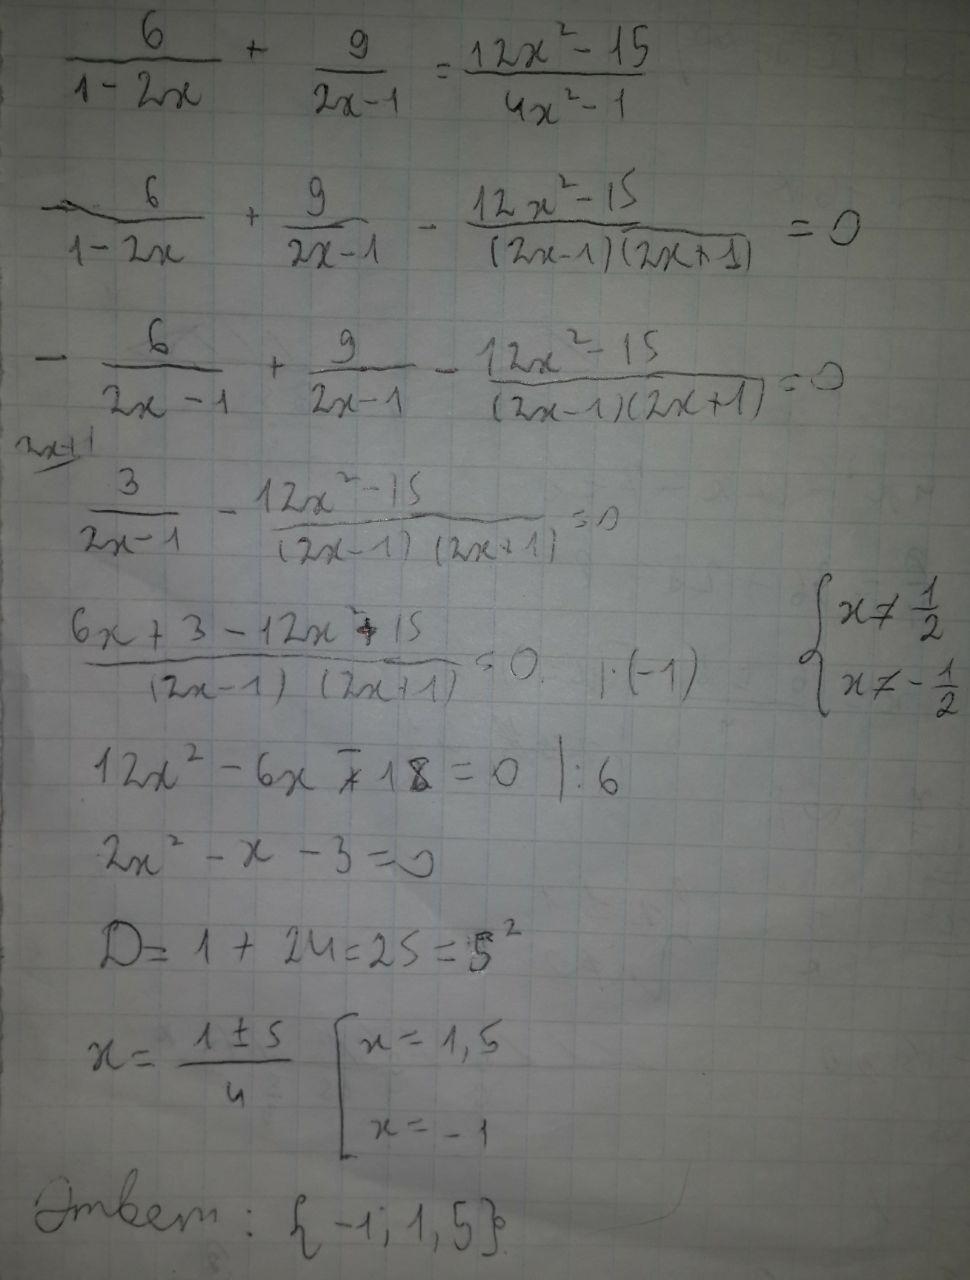 6/(1-2x) + 9/(2x-1) = (12x²-15)/(4x²-1)
6/(1-2x) + 9/(2x-1) - (12x²-15)/((2x-1)(2x+1)) = 0
- 6/(2x-1) + 9/(2x-1) - (12x²-15)/((2x-1)(2x+1)) = 0
2x+1
3/(2x-1) - (12x²-15)/((2x-1)(2x+1)) = 0
(6x+3-12x²+15)/((2x-1)(2x+1)) = 0. |·(-1) { x≠1/2 x≠-1/2
12x² - 6x - 18 = 0 |:6
2x² - x - 3 = 0
D = 1 + 24 = 25 = 5²
x = (1±5)/4 [ x = 1,5
x = -1
Ответ: {-1; 1,5}.